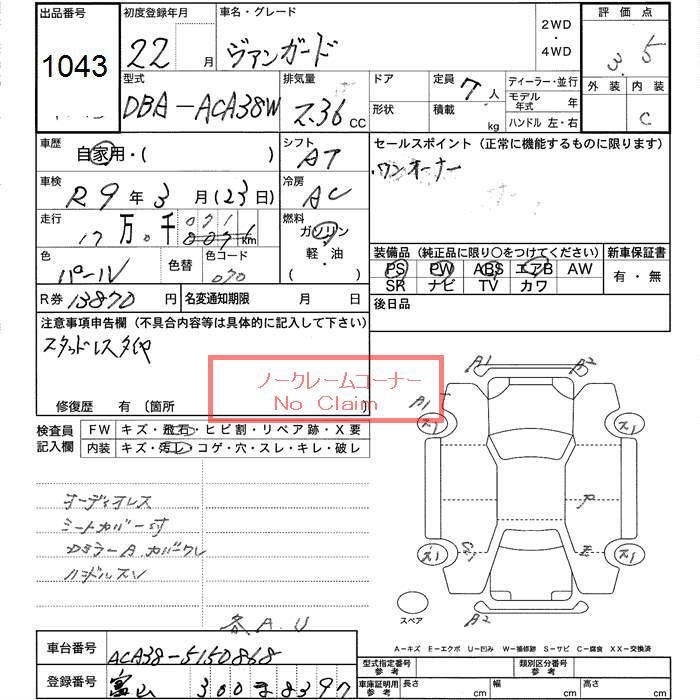 出品番号 初度登録年月 車名・グレード 2WD ・ 4WD 評価点
1043 22 月 ヴァンガード 3.5
型式 排気量 ドア 定員 7 人 ディーラー・並行 外装 内装
DBA-ACA38W 2.36 CC 形状 積載 kg モデル年式 年 C
ハンドル 左・右
車歴 自家用・( ) シフト AT セールスポイント (正常に機能するものに限ります)
車検 R9年3月(23日) 冷房 AC ワンオーナー
走行 17万.0千071 km 燃料 ガソリン・軽・油 ( )
色 パール 色替 色コード 070
装備品 (純正品に限り○をつけてください) 新車保証書
PS PW ABS エアB AW 有・無
SR ナビ TV カワ
R券 13870 円 名変通知期限 月 日 後日品
注意事項申告欄 (不具合内容等は具体的に記入して下さい)
スタッドレスタイヤ
ノークレームコーナー
No Claim
修復歴 有 〔箇所 〕
検査員記入欄 FW キズ・飛石・ヒビ割・リペア跡・X要
内装 キズ・汚レ・コゲ・穴・スレ・キレ・破レ
オーディオレス
シートカバー付
DSミラーA.カバーワレ
ハンドルスレ
各A.U
A1 A2
A1
ス1 ス1
P
ス1 E ス1
A2
スペア
A-キズ E-エクボ U-凹み W-補修跡 S-サビ C-腐食 XX-交換済
車台番号 ACA38-5150868
登録番号 富山 300 ま 8397
型式指定番号 参考 類別区分番号 参考
車庫証明用 参考 長さ cm 幅 cm 高さ cm